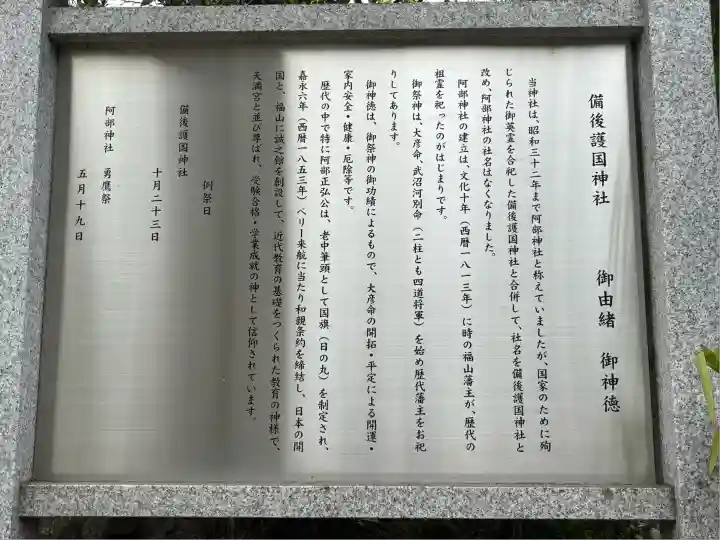 備後護国神社　御由緒　御神徳
当神社は、昭和三十二年まで阿部神社と称えていましたが、国家のために殉
じられた御英霊を合祀した備後護国神社と合併して、社名を備後護国神社と
改め、阿部神社の社名はなくなりました。
阿部神社の建立は、文化十年（西暦一八一三年）に時の福山藩主が、歴代の
祖霊を祀ったのがはじまりです。
御祭神は、大彦命、武沼河別命（二柱とも四道将軍）を始め歴代藩主をお祀
りしてあります。
御神徳は、御祭神の御功績によるもので、大彦命の開拓・平定による開運・
家内安全・健康・厄除等です。
歴代の中で特に阿部正弘公は、老中筆頭として国旗（日の丸）を制定され、
嘉永六年（西暦一八五三年）ペリー来航に当たり和親条約を締結し、日本の開
国と、福山に誠之館を創設して、近代教育の基礎をつくられた教育の神様で、
天満宮と並び尊ばれ、受験合格・学業成就の神として信仰されています。
例祭日
備後護国神社
十月二十三日
阿部神社　勇鷹祭
五月十九日